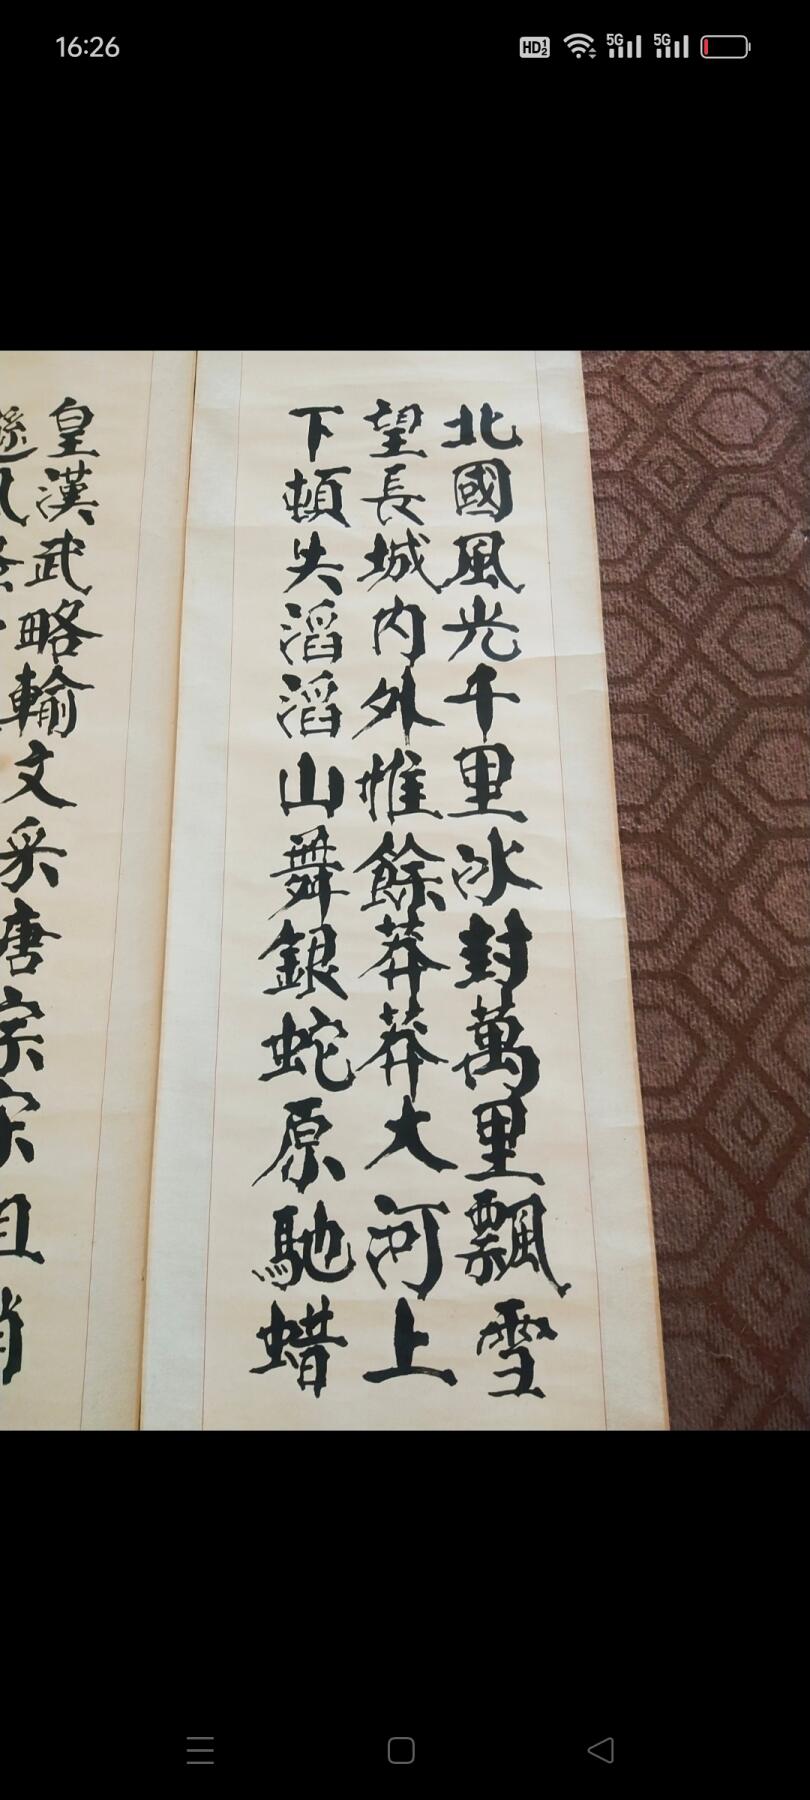 16:26
HD 1 2 5G 5G
北國風光千里冰封萬里飄雪
望長城內外惟餘莽莽大河上
下頓失滔滔山舞銀蛇原馳蜡
皇漢武略輸文采唐宗宋祖稍
遜風騷